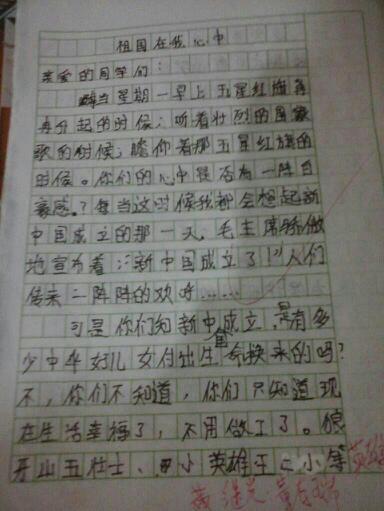 祖国在我心中
亲爱的同学们：
每当星期一早上五星红旗冉
冉升起的时候；听着壮烈的国
歌的时候；瞻仰着那五星红旗的
时候。你们的心中是否有一阵自
豪感？每当这时候我都会想起新
中国成立的那一天，毛主席骄傲
地宣布着：新中国成立了！人们
传来一阵阵的欢呼……
可是你们知新中国成立，是有多
少中华好儿女付出生命换来的吗？
不，你们不知道，你们只知道现
在生活幸福了，不用做工了。狼
牙山五壮士、小英雄王二小等
黄继光、董存瑞 英雄